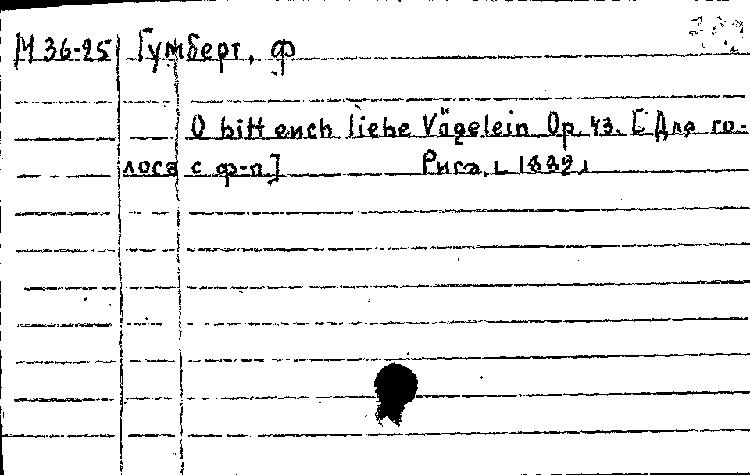 М 36-25 Гумберт, Ф
O bitt euch liebe Vägelein Op. 43. [Для го-
лоса с ф-п] Рига, 1889